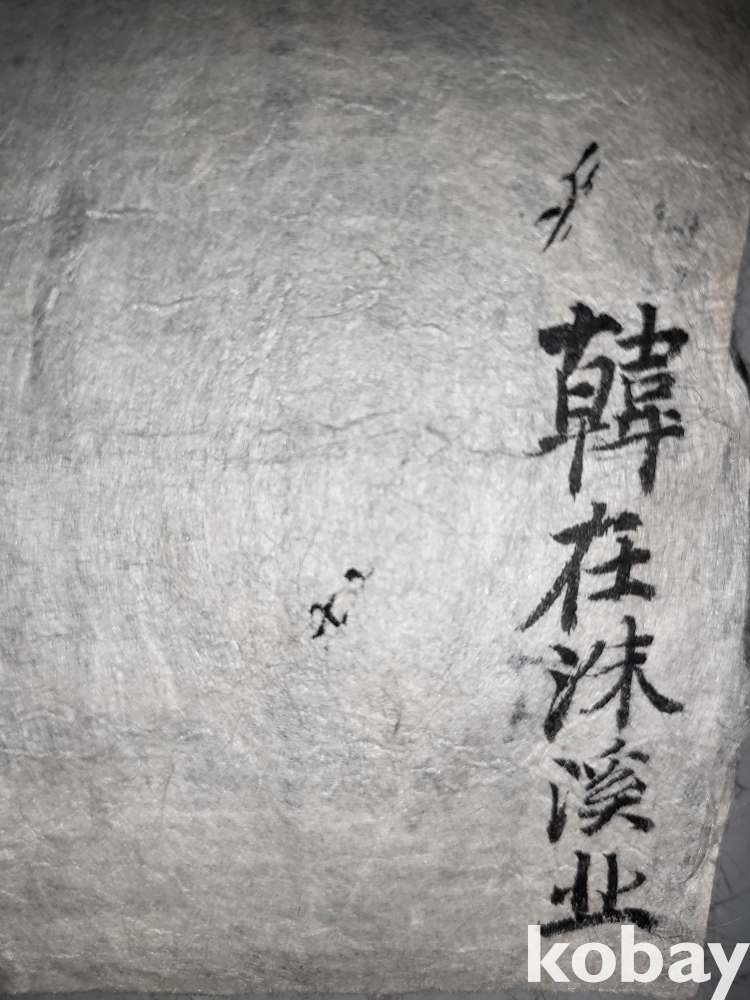 韓在沫溪业
kobay